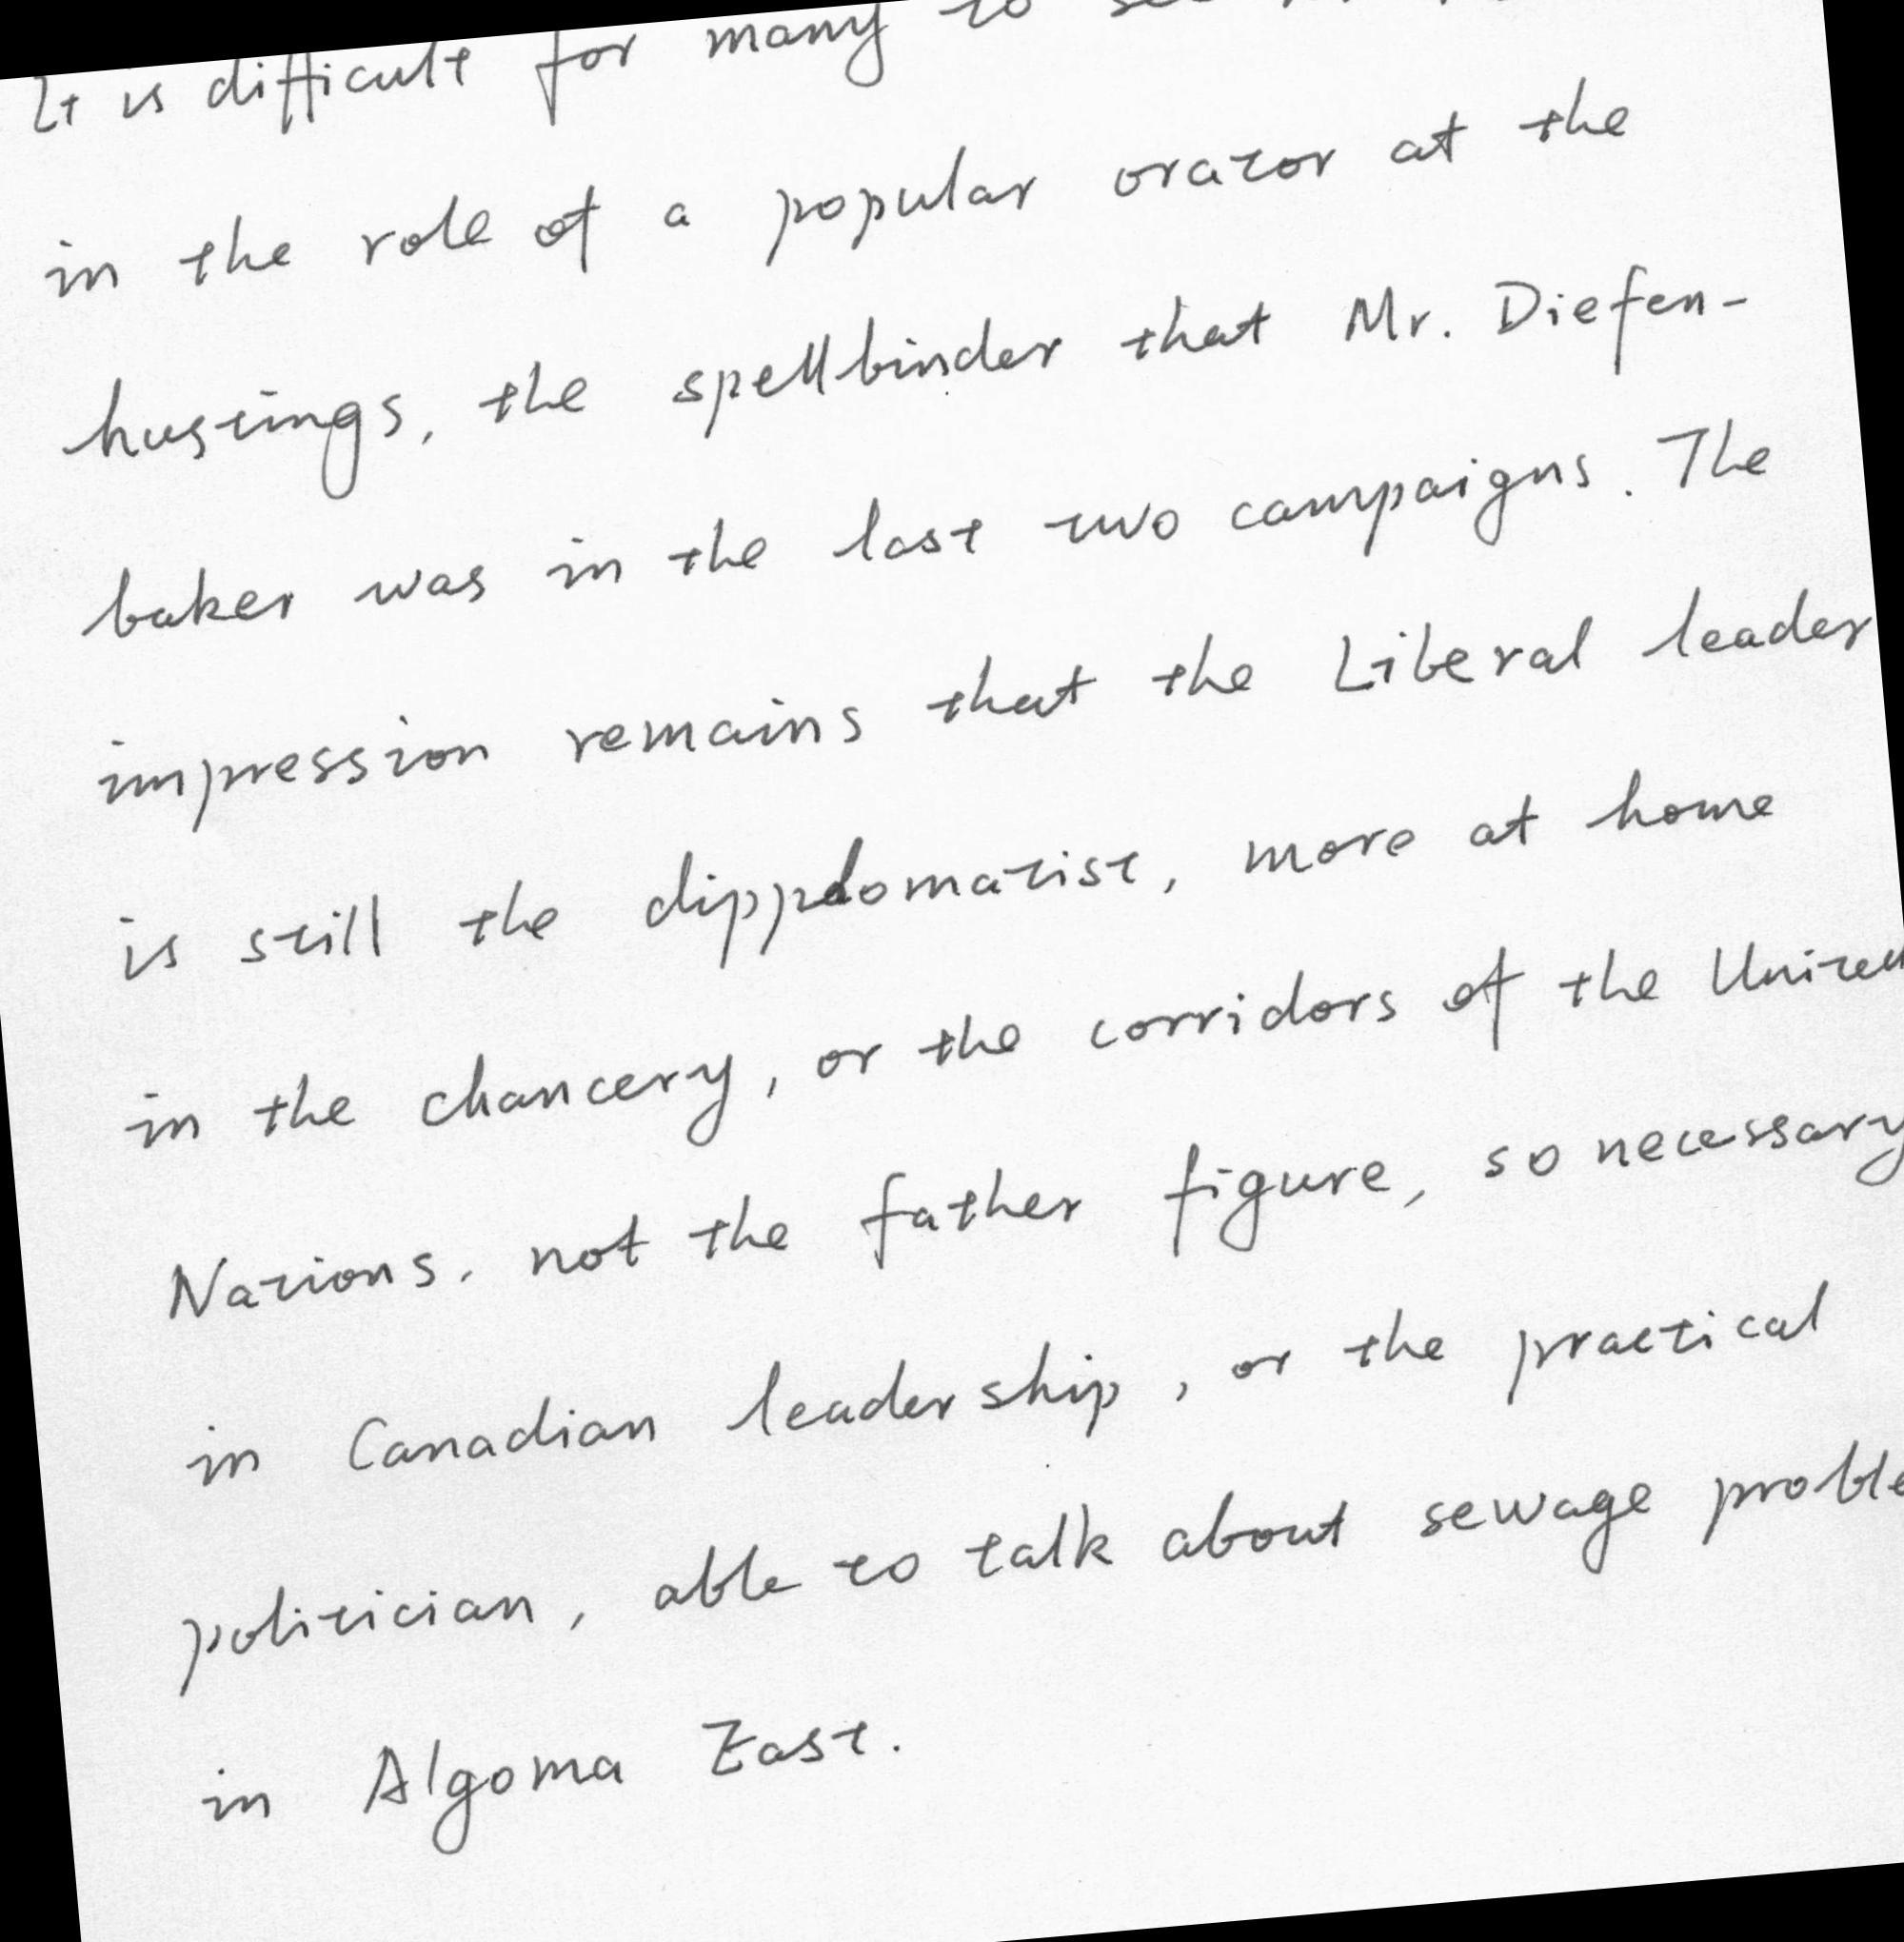 It is difficult for many to see
in the role of a popular orator at the
hustings, the spellbinder that Mr. Diefen-
baker was in the last two campaigns. The
impression remains that the Liberal leader
is still the dippdomatist, more at home
in the chancery, or the corridors of the United
Nations. not the father figure, so necessary
in Canadian leadership, or the practical
politician, able to talk about sewage proble
in Algoma East.